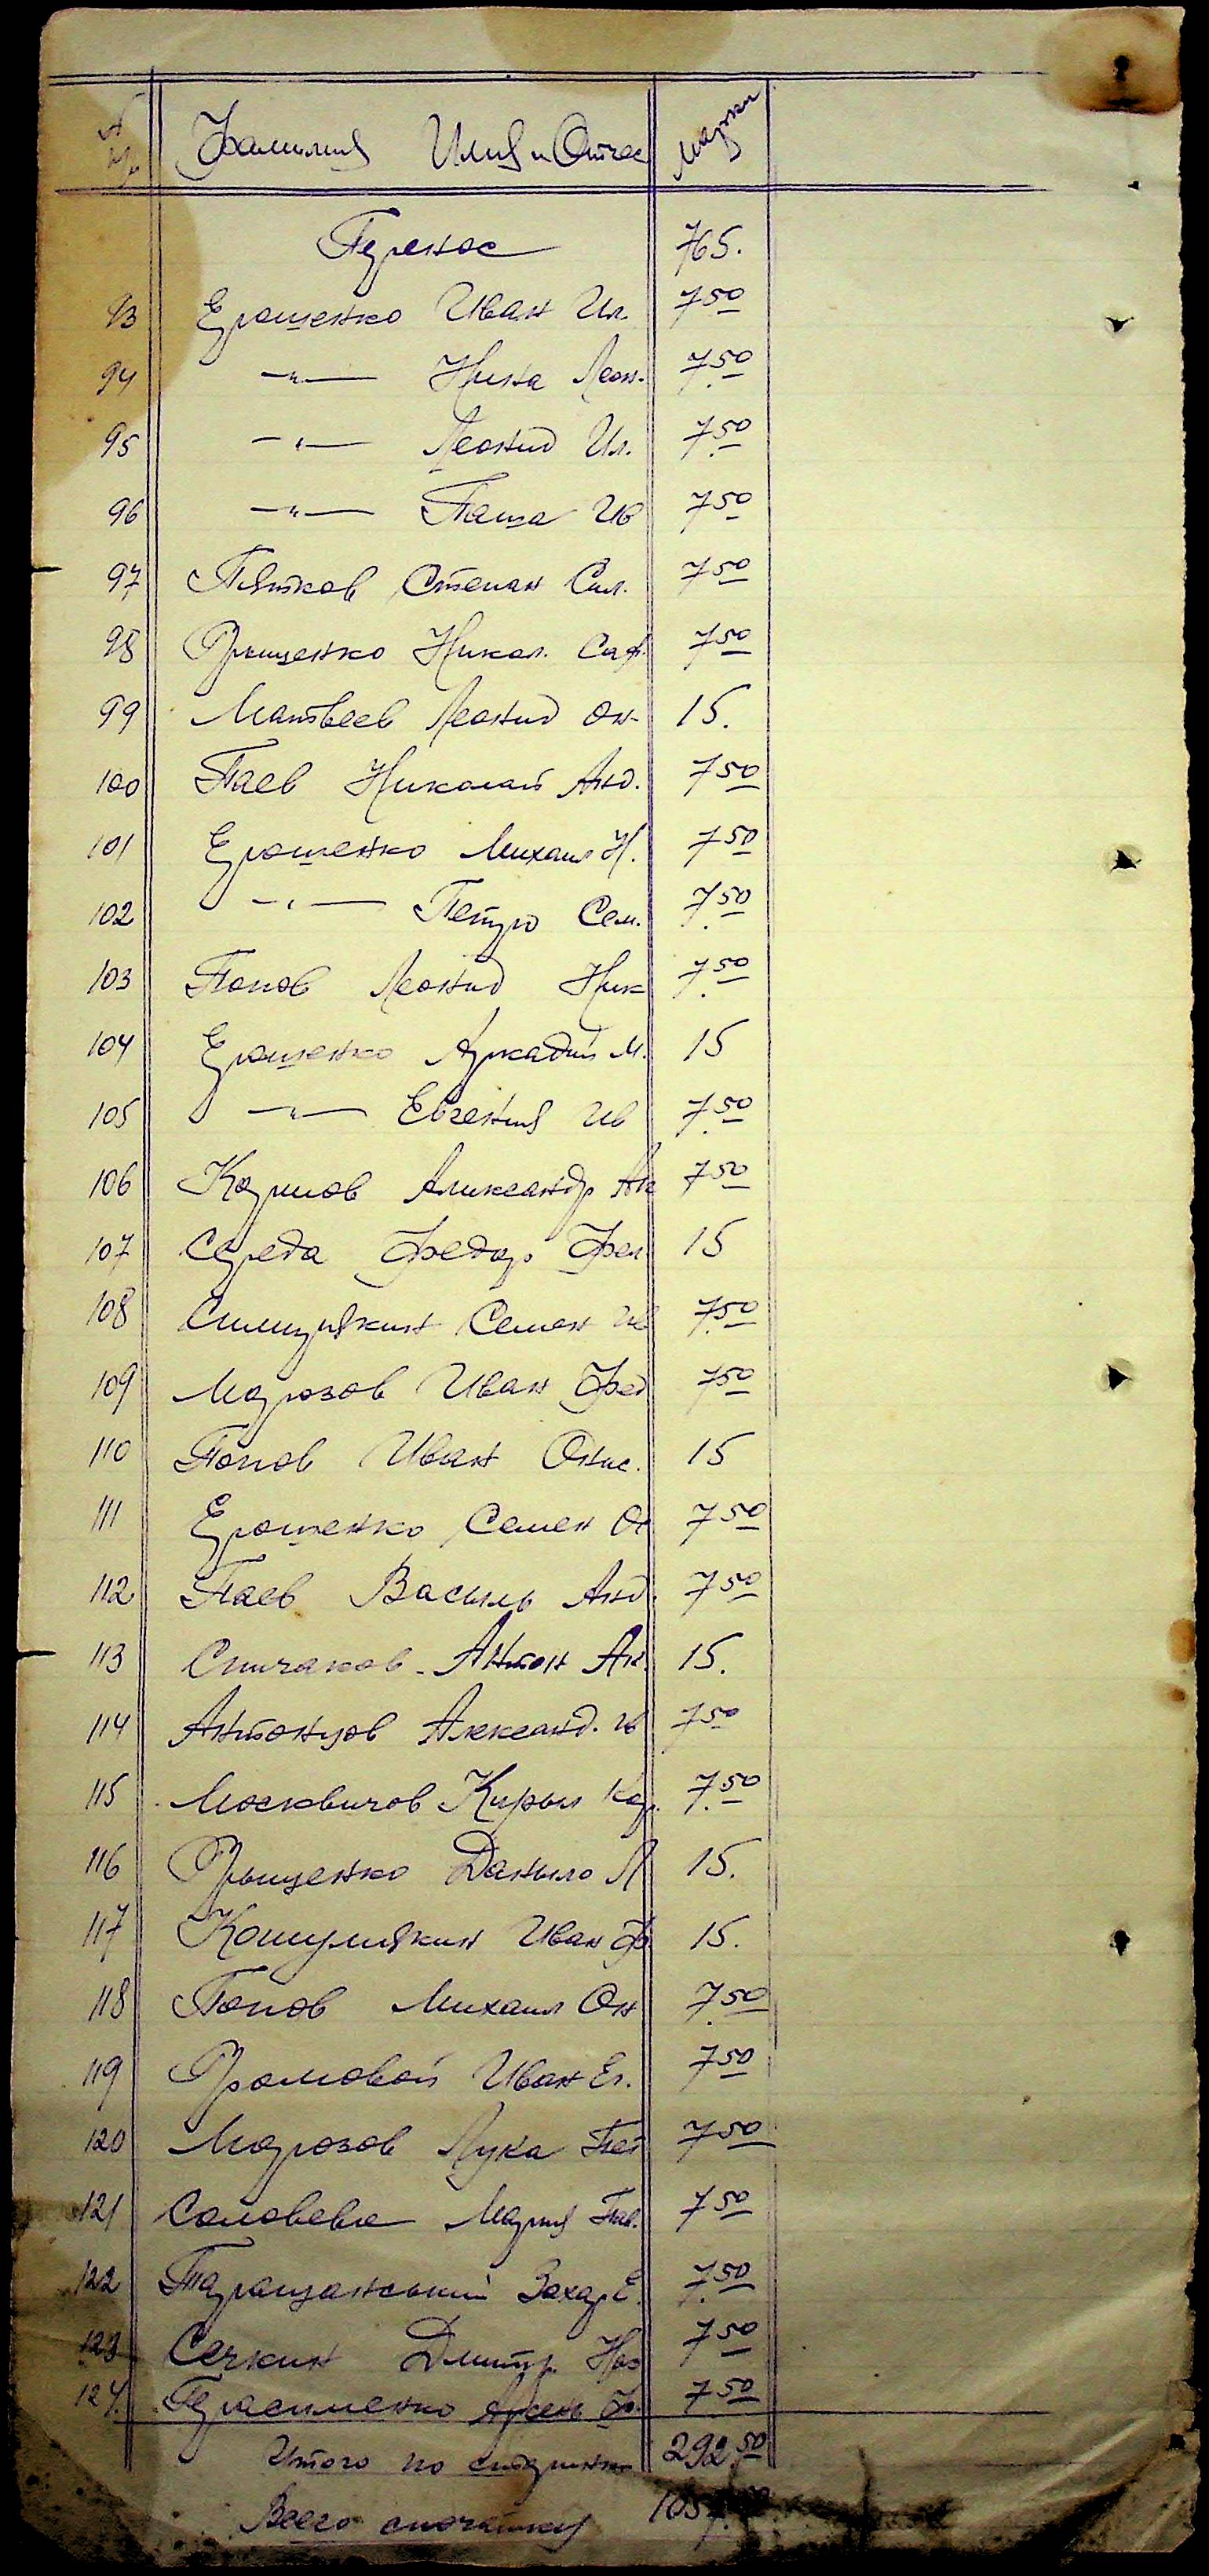 № Фамилия Имя и Отчес Марки
Перенос 765.
93 Ерошенко Иван Ил. 7 50
94 —"— Нина Леон. 7 50
95 —"— Леонид Ил. 7 50
96 —"— Паша Ив 7 50
97 Пятков Степан Сил. 7 50
98 Грыценко Никол. Саф. 7 50
99 Матвеев Леонид Он- 15.
100 Паев Николай Анд. 7 50
101 Ерошенко Михаил Н. 7 50
102 —"— Петро Сем. 7 50
103 Попов Леонид Ник 7 50
104 Ерошенко Аркадий М. 15
105 —"— Евгения Ив 7 50
106 Александр 7 50
107 Середа Федор 15
108 Семен 7 50
109 Морозов Иван Фед 7 50
110 Попов Иван Онис. 15
111 Ерошенко Семен 7 50
112 Паев Василь Анд. 7 50
113 Спичаков - Антон Ан. 15.
114 Антонцов Александ. Ив 7 50
115 Москвичов Кирыл 7 50
116 Грыценко Даныло Л 15.
117 Кошулякин Иван Ф. 15.
118 Попов Михаил Он 7 50
119 Громовой Иван Ег. 7 50
120 Морозов Лука Пет 7 50
121 Соловьева Мария Пав. 7 50
122 Таращанський Захар Е. 7 50
123 Сечкин Дмитр. 7 50
124. Герасименко Ф. 7 50
Итого по 292.50
Всего спочатку 1057